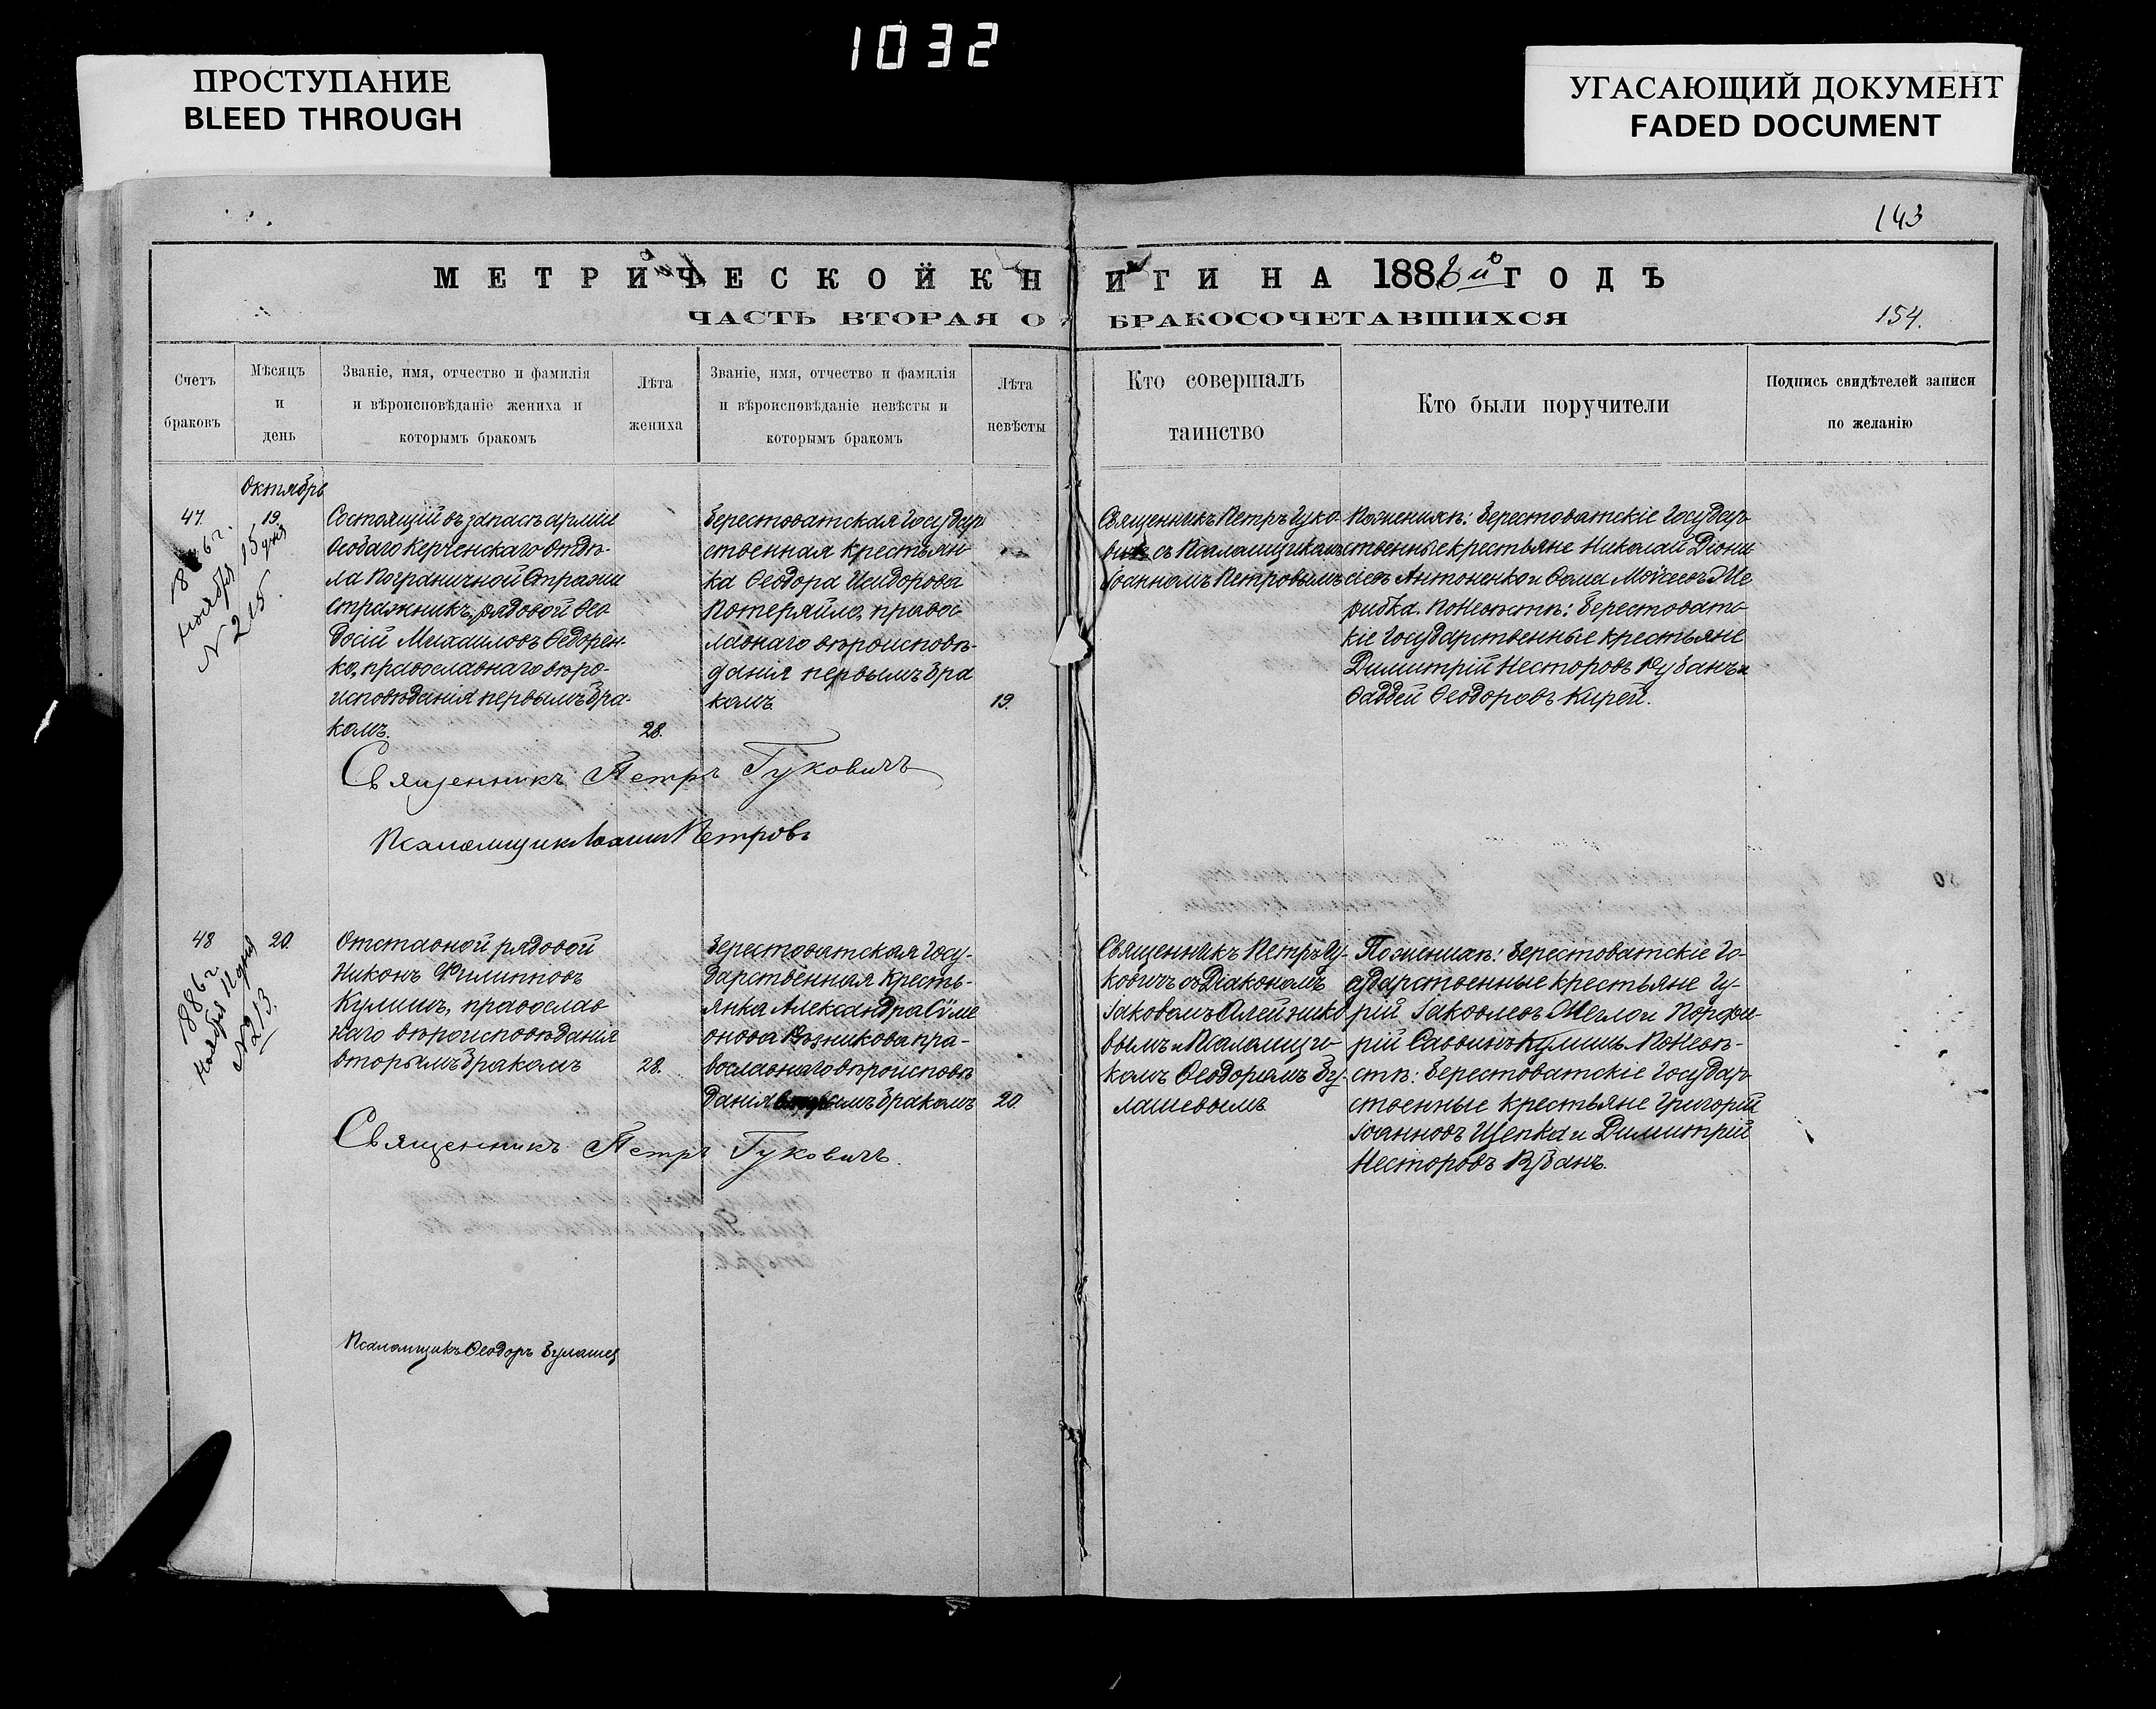 1032
ПРОСТУПАНИЕ
BLEED THROUGH
УГАСАЮЩИЙ ДОКУМЕНТ
FADED DOCUMENT
143
МЕТРИЧЕСКОЙ КНИГИ НА 1886й ГОДЪ
ЧАСТЬ ВТОРАЯ О БРАКОСОЧЕТАВШИХСЯ
154.
Счетъ
браковъ
Мѣсяцъ
и
день
Званіе, имя, отчество и фамилія
и вѣроисповѣданіе жениха и
которымъ бракомъ
Лѣта
жениха
Званіе, имя, отчество и фамилія
и вѣроисповѣданіе невѣсты и
которымъ бракомъ
Лѣта
невѣсты
Кто совершалъ
таинство
Кто были поручители
Подпись свидѣтелей записи
по желанію
Октябрь
47.
19.
1886 г.
Ноября 15 дня
N 215.
Состоящій въ запасѣ арміи
Особаго Керченскаго Отдѣ-
ла Пограничной Стражи
стражникъ, рядовой Ѳео
досій Михаиловъ Ѳедорен-
ко, православнаго вѣро-
исповѣданія первымъ бра-
комъ.
28.
Берестоватская Государ
ственная крестьян
ка Ѳеодора Исидорова
Потеряйло, правос
лавнаго вѣроисповѣ-
данія первымъ бра
комъ
19.
Священникъ Петръ Гуко-
вичъ съ Псаломщикомъ
Іоанномъ Петровымъ
По женихѣ: Берестоватскіе Государ
ственные крестьяне Николай Діони
сіевъ Антоненко и Ѳома Моисеевъ
По невѣстѣ: Берестоватс
кіе Государственные крестьяне
Димитрій Несторовъ Кубанъ и
Ѳаддей Ѳеодоровъ Кирей.
Священникъ Петръ Гуковичъ
Псаломщикъ Іоаннъ Петровъ
48
20.
1886 г.
Ноября 11 дня
N 213.
Отставной рядовой
Никонъ Филипповъ
Кулишъ, православ
наго вѣроисповѣданія
вторымъ бракомъ
28.
Берестоватская Госу-
дарственная Кресть-
янка Александра Сѵме
онова Возникова пра-
вославнаго вѣроисповѣ
данія бракомъ
20.
Священникъ Петръ Гу-
ковичъ съ Діакономъ
Іаковомъ Олейнико
вымъ и Псаломщи-
комъ Ѳеодоромъ Бу-
лашевымъ
По женихѣ: Берестоватскіе Го-
сударственные крестьяне Гу-
рій Іаковлевъ Шегло и Порфи-
рій Саввинъ Кулишъ. По невѣ-
стѣ: Берестоватскіе Государ
ственные крестьяне Григорій
Іоанновъ Щепка и Димитрій
Несторовъ Кубанъ.
Священникъ Петръ Гуковичъ.
Псаломщикъ Ѳеодоръ Булашев